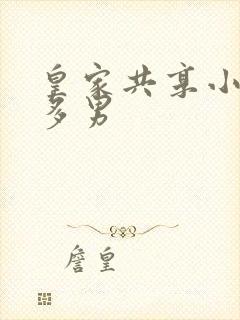 皇家共享小
多男
詹皇